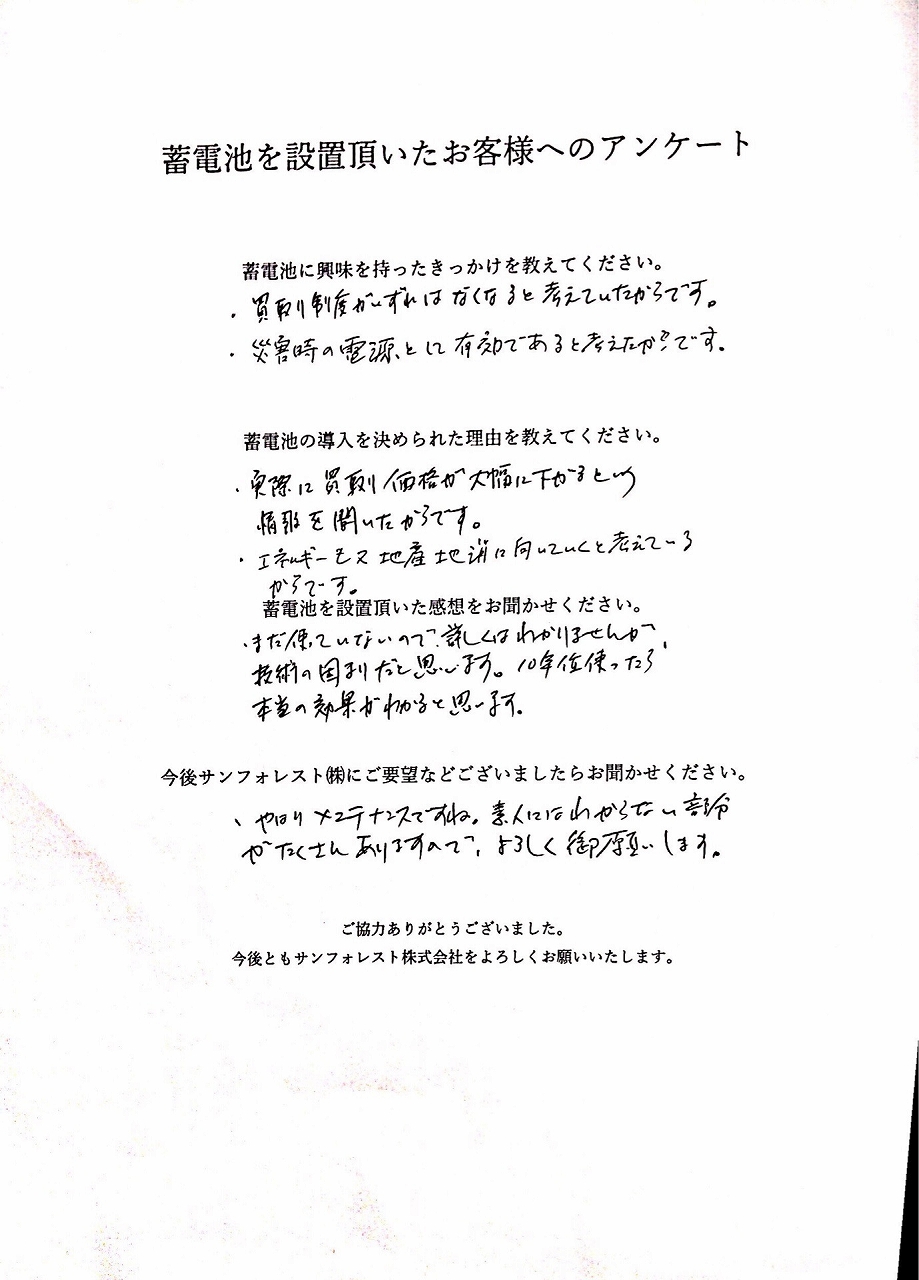 蓄電池を設置頂いたお客様へのアンケート
蓄電池に興味を持ったきっかけを教えてください。
・買取り制度がいずれはなくなると考えていたからです。
・災害時の電源として有効であると考えたからです。
蓄電池の導入を決められた理由を教えてください。
・実際に買取り価格が大幅に下がるという
情報を聞いたからです。
・エネルギーもス地産地消に向いていくと考えている
からです。
蓄電池を設置頂いた感想をお聞かせください。
・まだ使っていないので、詳しくはわかりませんが、
技術の固まりだと思います。10年位使ったら、
本当の効果がわかると思います。
今後サンフォレスト㈱にご要望などございましたらお聞かせください。
、やはりメンテナンスですね。素人にはわからない部分
がたくさんありますので、よろしく御願いします。
ご協力ありがとうございました。
今後ともサンフォレスト株式会社をよろしくお願いいたします。